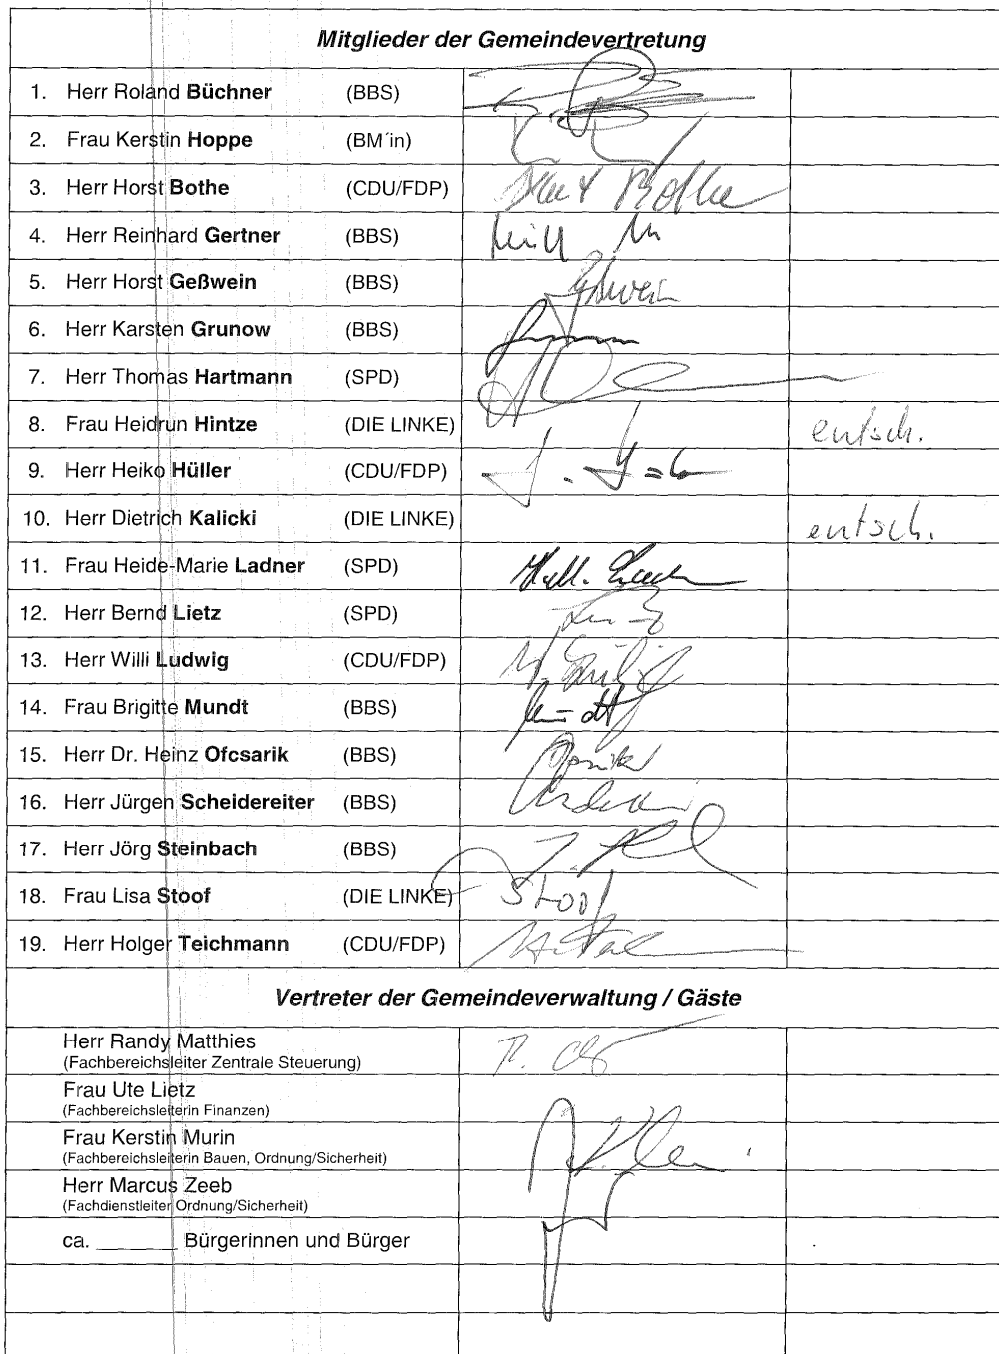 Mitglieder der Gemeindevertretung
1. Herr Roland Büchner (BBS)
2. Frau Kerstin Hoppe (BM´in)
3. Herr Horst Bothe (CDU/FDP) Horst Bothe
4. Herr Reinhard Gertner (BBS)
5. Herr Horst Geßwein (BBS) Geßwein
6. Herr Karsten Grunow (BBS)
7. Herr Thomas Hartmann (SPD)
8. Frau Heidrun Hintze (DIE LINKE) entsch.
9. Herr Heiko Hüller (CDU/FDP)
10. Herr Dietrich Kalicki (DIE LINKE) entsch.
11. Frau Heide-Marie Ladner (SPD)
12. Herr Bernd Lietz (SPD)
13. Herr Willi Ludwig (CDU/FDP)
14. Frau Brigitte Mundt (BBS)
15. Herr Dr. Heinz Ofcsarik (BBS)
16. Herr Jürgen Scheidereiter (BBS)
17. Herr Jörg Steinbach (BBS)
18. Frau Lisa Stoof (DIE LINKE) Stoof
19. Herr Holger Teichmann (CDU/FDP)
Vertreter der Gemeindeverwaltung / Gäste
Herr Randy Matthies
(Fachbereichsleiter Zentrale Steuerung)
Frau Ute Lietz
(Fachbereichsleiterin Finanzen)
Frau Kerstin Murin
(Fachbereichsleiterin Bauen, Ordnung/Sicherheit)
Herr Marcus Zeeb
(Fachdienstleiter Ordnung/Sicherheit)
ca. ________ Bürgerinnen und Bürger